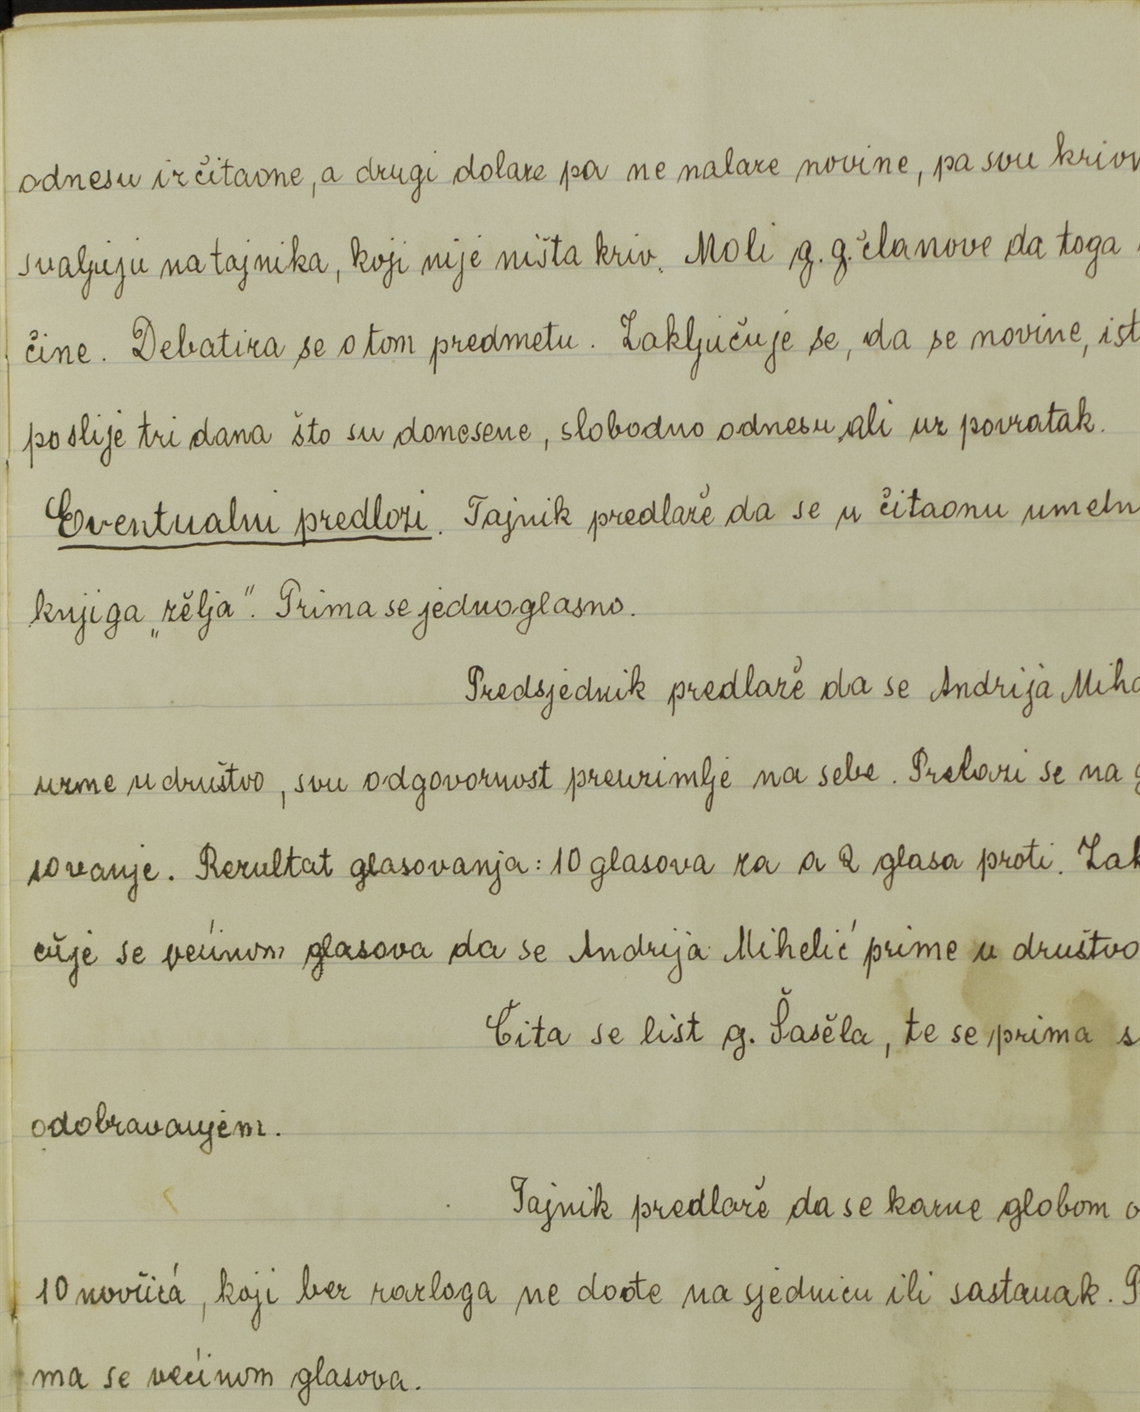 odnesu iz čitaone, a drugi dolaze pa ne nalaze novine, pa svu krivn
svaljuju na tajnika, koji nije ništa kriv. Moli g.g. članove da toga
čine. Debatira se o tom predmetu. Zaključuje se, da se novine, ist
poslije tri dana što su donesene, slobodno odnesu, ali uz povratak.
Eventualni predlozi. Tajnik predlaže da se u čitaonu umetn
knjiga „želja". Prima se jednoglasno.
Predsjednik predlaže da se Andrija Mihe
uzme u društvo, svu odgovornost preuzimlje na sebe. Prelazi se na g
sovanje. Rezultat glasovanja: 10 glasova za a 2 glasa proti. Zak
čuje se većinom glasova da se Andrija Mihelić prime u društvo
Čita se list g. Šašela, te se prima s
odobravanjem.
Tajnik predlaže da se kazne globom o
10 novčića, koji bez razloga ne dođe na sjednicu ili sastanak. P
ma se većinom glasova.